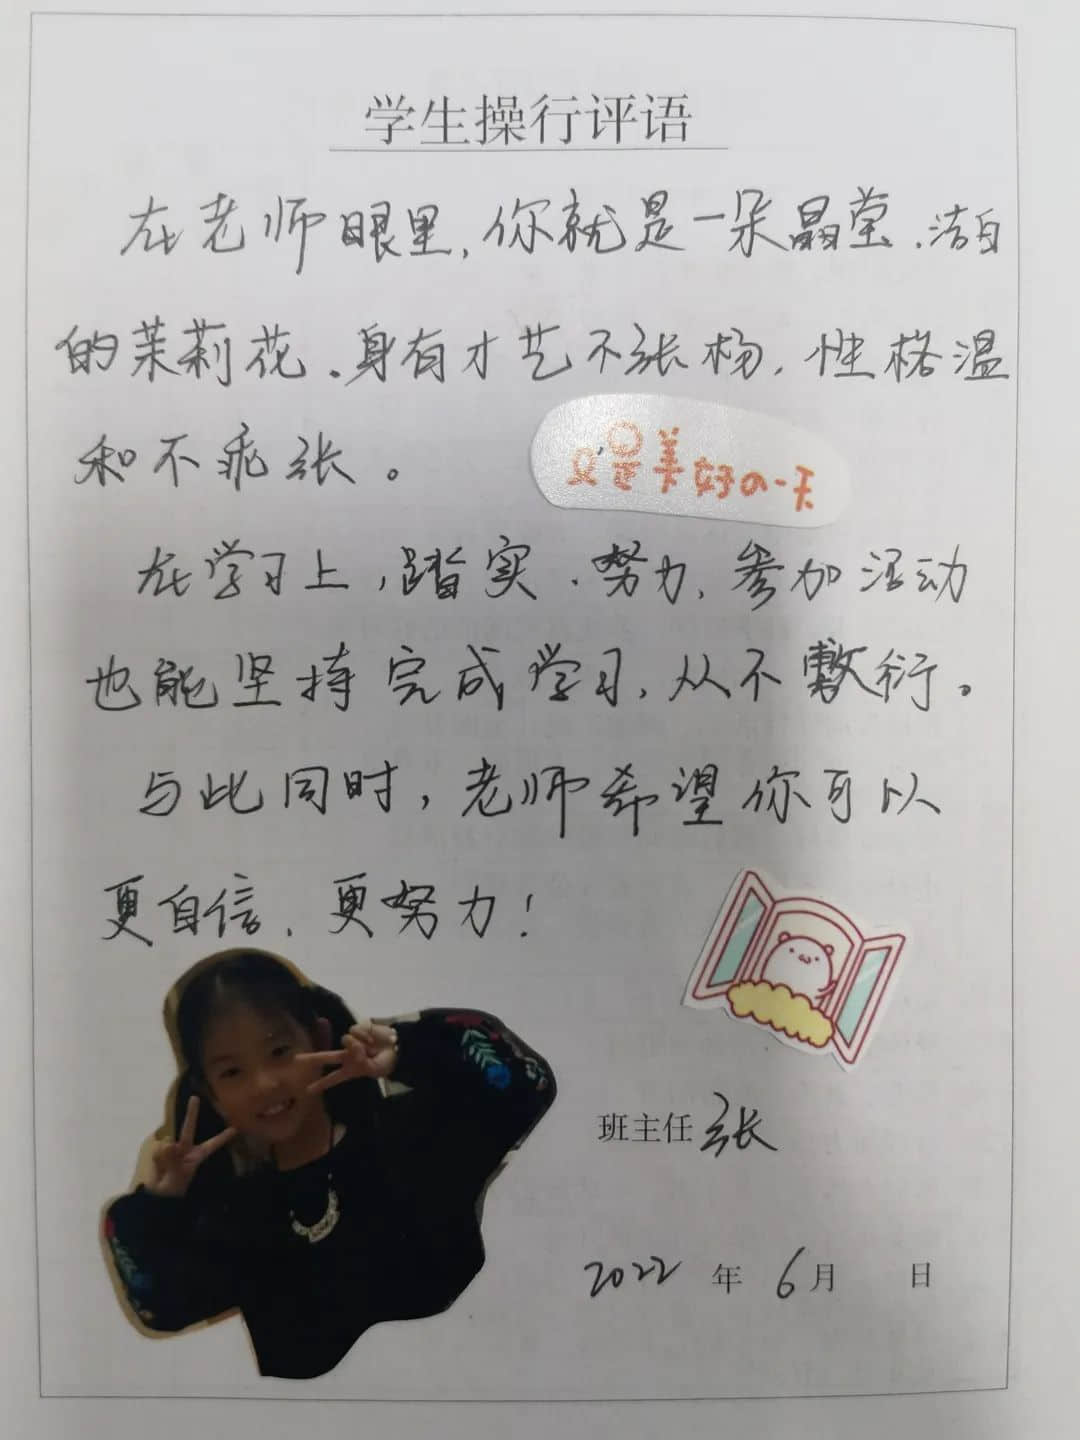 学生操行评语
在老师眼里，你就是一朵晶莹、洁白
的茉莉花。身有才艺不张杨，性格温
和不乖张。
又是美好の一天
在学习上，踏实、努力，参加活动
也能坚持完成学习，从不敷衍。
与此同时，老师希望你可以
更自信、更努力！
班主任 张
2022 年 6月 日